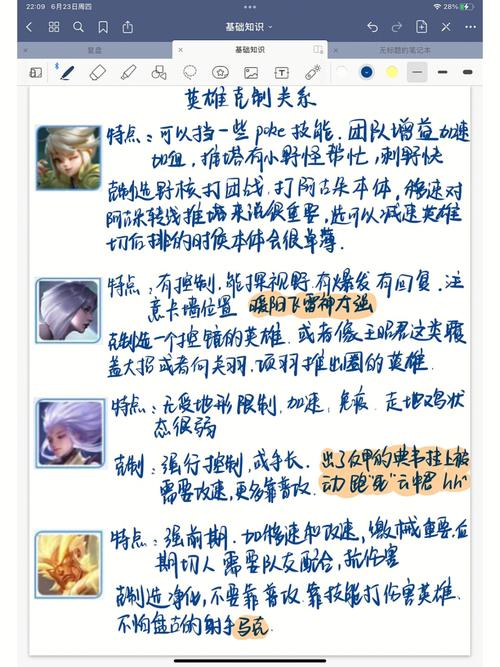 22:09 6月23日周四
28%
基础知识
复盘
基础知识
无标题的笔记本
英雄克制关系
特点：可以挡一些poke技能．团队增益加速
加血，推塔有小野怪帮忙，刺野快
克制选野核打团战．打阿古朵本体，移速对
阿古朵转线推塔来说很重要，还可以减速英雄
切后排的时候本体会很单薄．
特点：有控制，能探视野，有爆发有回复．注
意卡墙位置 暖阳飞雷神太强
克制选一个控锁的英雄．或者像王昭君这类覆
盖大招或者向关羽．项羽推出圈的英雄．
特点：无受地形限制，加速，免疫．走地鸡状
态很弱
克制：强行控制，或手长．出了反甲的典韦挂上被
需要攻速，更多靠普攻．动 跑"死"云中君 hh
特点：强前期．加移速和攻速，缴械重要，后
期切人需要队友配合，抗伤害
克制选净化，不要靠普攻．靠技能打伤害英雄．
不怕盘古的射手马克